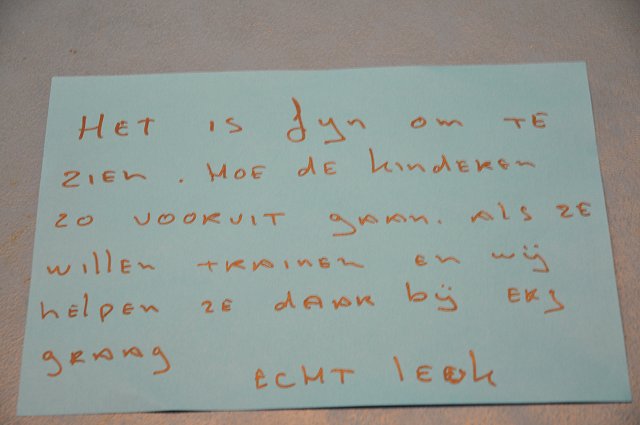 HET is fyn om TE
ZIEN. HOE de kinderen
zo VOORUIT gaan. Als ze
willen trainen en wij
helpen ze daar bij erg
graag
ECHT leuk